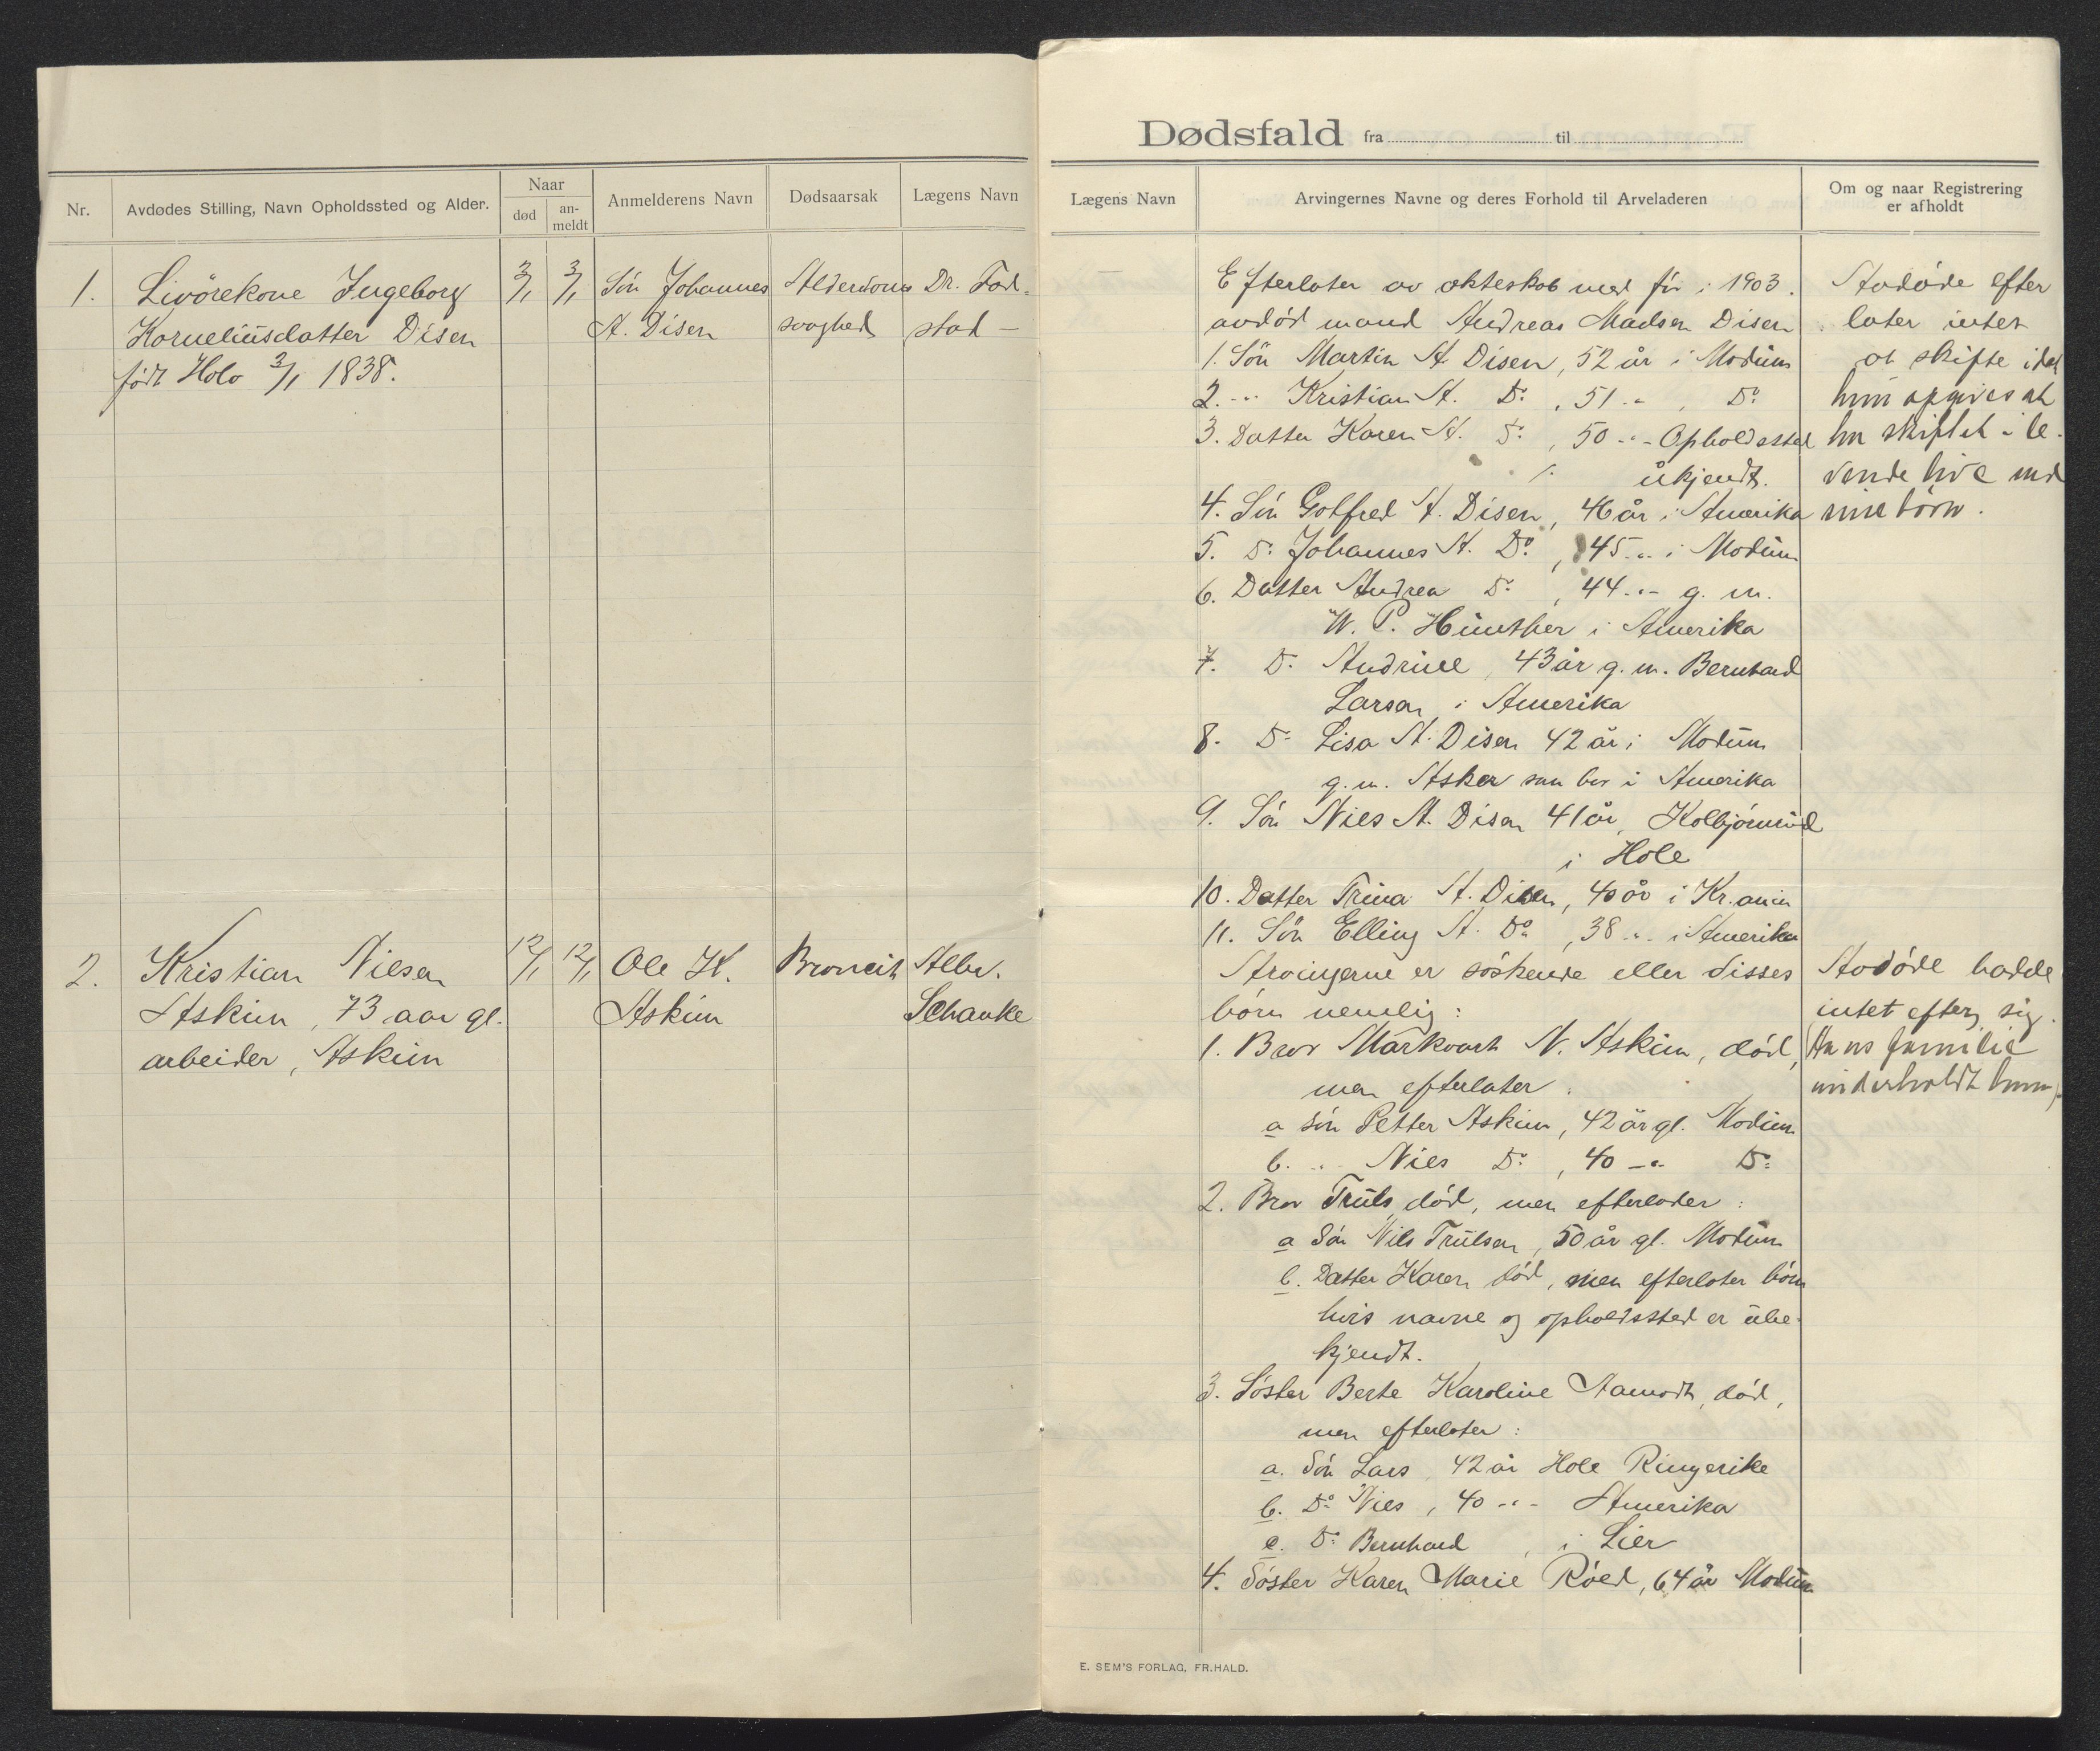 Dødsfald fra til
Nr.
Avdødes Stilling, Navn Opholdssted og Alder.
Naar
død
an-
meldt
Anmelderens Navn
Dødsaarsak
Lægens Navn
Lægens Navn
Arvingernes Navne og deres Forhold til Arveladeren
Om og naar Registrering
er afholdt
1. Livörekone Ingeborg
Korneliusdatter Disen
født Hole 3/1 1838.
3/1
3/1
Sön Johannes
A. Disen
Alderdoms
svaghed
Dr. Fod-
stad —
Efterlater av ekteskab med før i 1903
avdöd mand Andreas Madsen Disen
1. Sön Martin A. Disen, 52 år i Modum
2. -"- Kristian A. Do , 51 -"- , Do
3. Datter Karen A. Do , 50 -"- Opholdssted
ukjendt.
4. Sön Gotfred A. Disen, 46 år i Amerika
5. Do Johannes A. Do , 45 -"- i Modum
6. Datter Andrea Do , 44 -"- g. m.
W. P. Hünther i Amerika
7. Do Andrine, 43 år g. m. Bernhard
Larsen i Amerika
8. Do Lisa A. Disen 42 år i Modum
g. m. Asker som bor i Amerika
9. Sön Niels A. Disen 41 år, Kolbjörnrud
i Hole
10. Datter Trina A. Disen, 40 år i Kr.ania
11. Sön Elling A. Do , 38 -"- i Amerika
Avdøde efter
later intet
at skifte idet
hun opgives at
ha skiftet i le-
vende live med
sine börn.
2. Kristian Nilsen
Askim, 73 aar gl.
arbeider, Askim
12/1
12/1
Ole K.
Askim
Broncit
Albr.
Schanke
Arvingerne er söskende eller disses
börn nemlig:
1. Bror Markvart N. Askim, död,
men efterlater:
a sön Petter Askim, 42 år gl. Modum
b. -"- Niels Do , 40 -"- Do
2. Bror Truls död, men efterlader:
a Sön Nils Trulsen, 50 år gl. Modum
b. Datter Karen död, men efterlater börn
hvis navne og opholdssted er ube-
kjendt.
3. Söster Berte Karoline Aamodt, död,
men efterlater:
a. Sön Lars, 42 år Hole Ringerike
b. Do Niels, 40 -"- Amerika
c. Do Bernhard , i Lier
4. Söster Karen Marie Röed, 64 år Modum
Avdøde hadde
intet efter sig.
Hans familie
underholdt ham.
E. SEM'S FORLAG, FR.HALD.